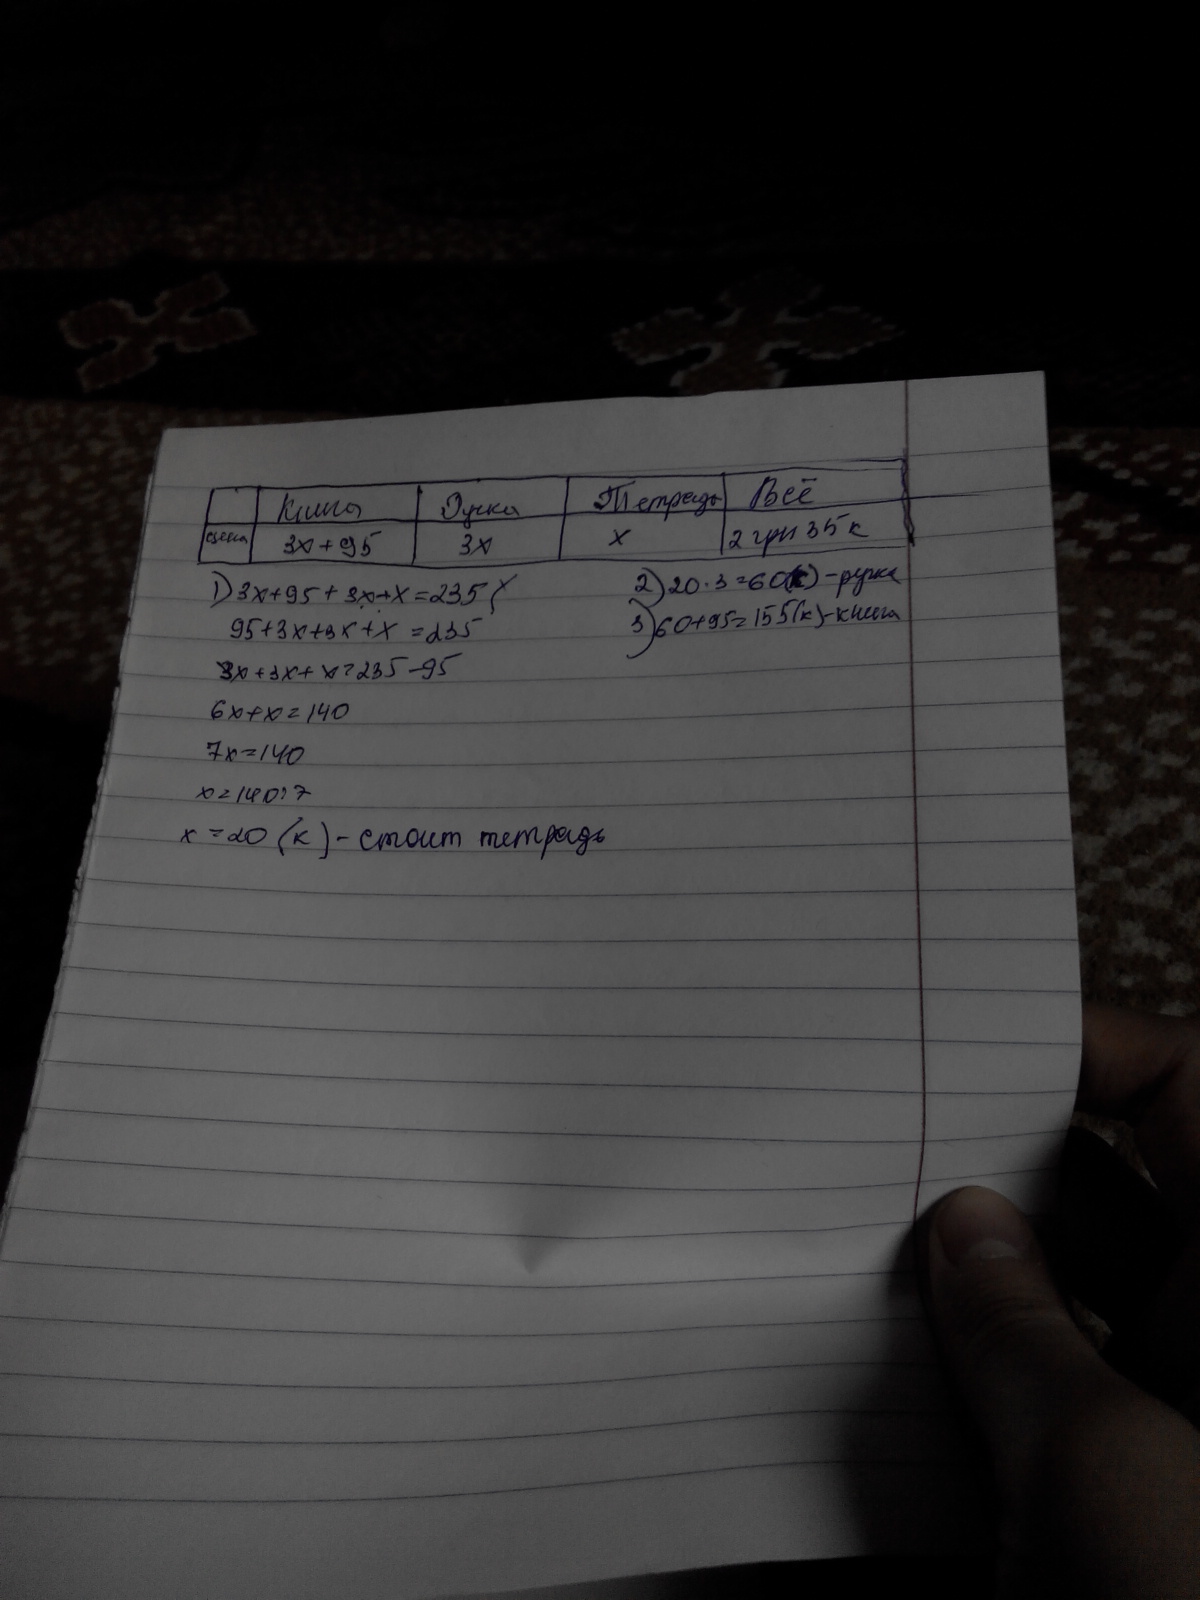 Книга Ручка Тетрадь Всё
цена 3x+95 3x x 2 грн 35 к
1) 3x+95+3x+x=235
95+3x+3x+x=235
3x+3x+x=235-95
6x+x=140
7x=140
x=140:7
x=20 (к) - стоит тетрадь
2) 20·3=60(к) - ручка
3) 60+95=155(к) - книга